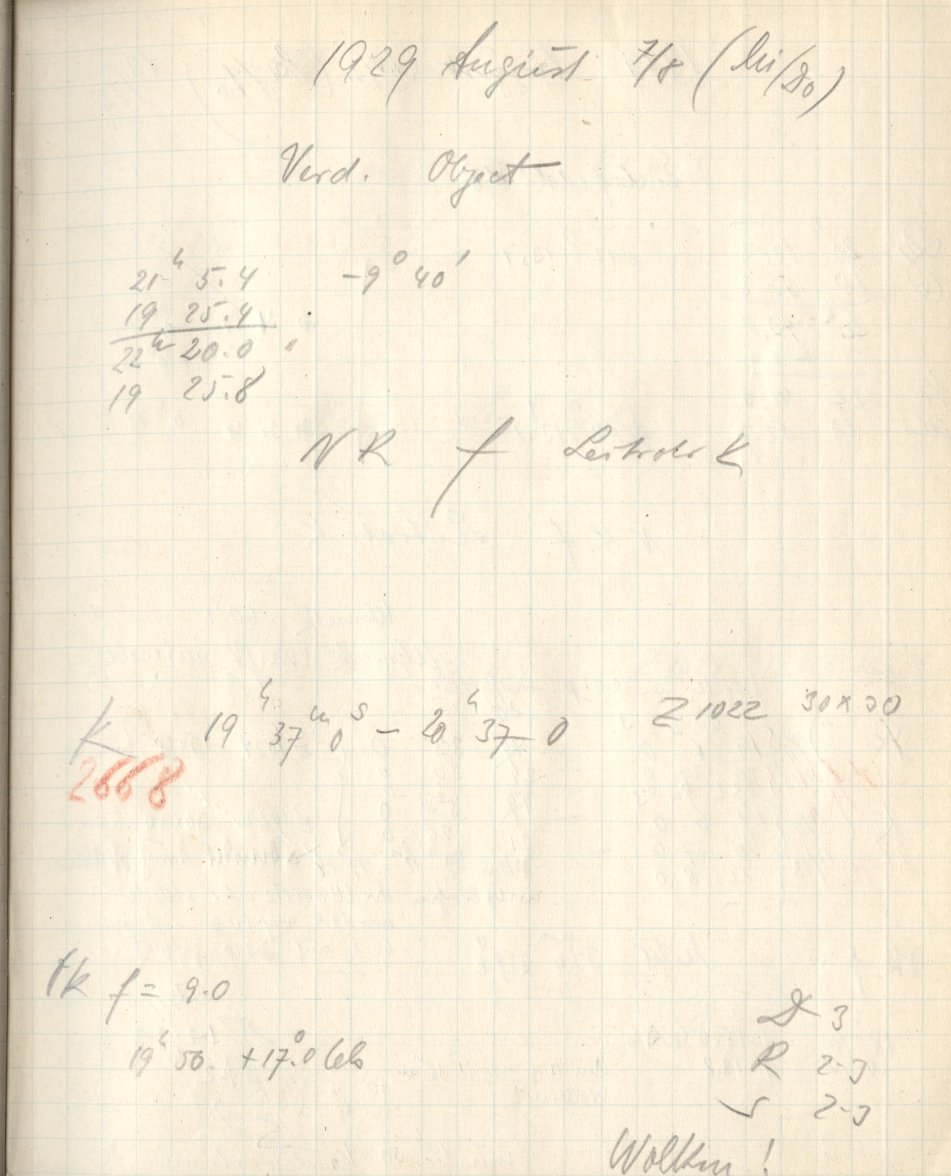 1929 August 7/8 (Mi/Do)
Verd. Object
21ʰ 5.4 -9° 40'
19 25.4
22ʰ 20.0
19 25.8
NR f Leitrohr K
K 19ʰ 37ᵐ 0ˢ - 20ʰ 37 0 Z 1022 30x30
2668
fk f = 9.0
19ʰ 50. +17.°0
D 3
R 2-3
S 2-3
Wolken!